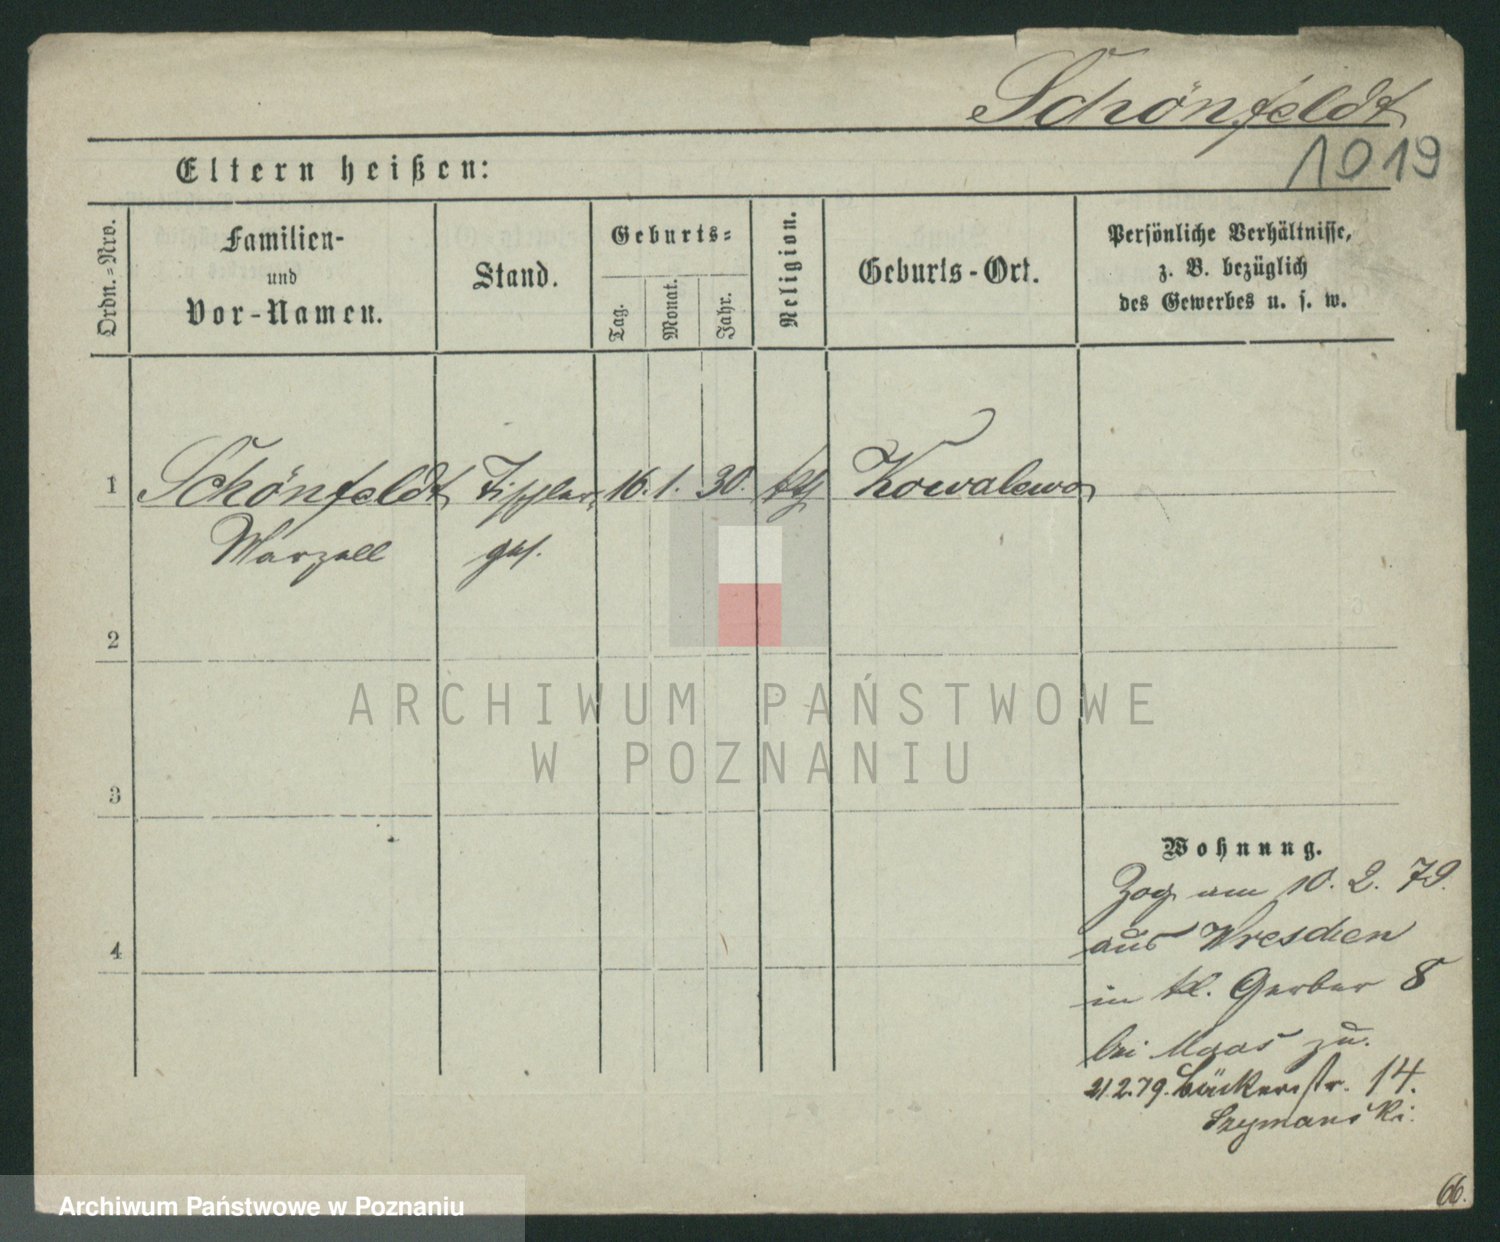 Schönfeldt
1019
Eltern heißen:
Ordn.=Nro.
Familien-
und
Vor-Namen.
Stand.
Geburts=
Tag.
Monat.
Jahr.
Religion.
Geburts-Ort.
Persönliche Verhältnisse,
z. B. bezüglich
des Gewerbes u. s. w.
1 Schönfeldt Tischler 16. 1. 30. kth Kowalewo
Marzell ges.
2
ARCHIWUM PAŃSTWOWE
W POZNANIU
3
Wohnung.
Zog am 10. 2. 79.
aus Dresden
4
in kl. Gerber 8
bei Maas zu.
21.2.79. Bäckerstr. 14.
Szymanski.
66.
Archiwum Państwowe w Poznaniu